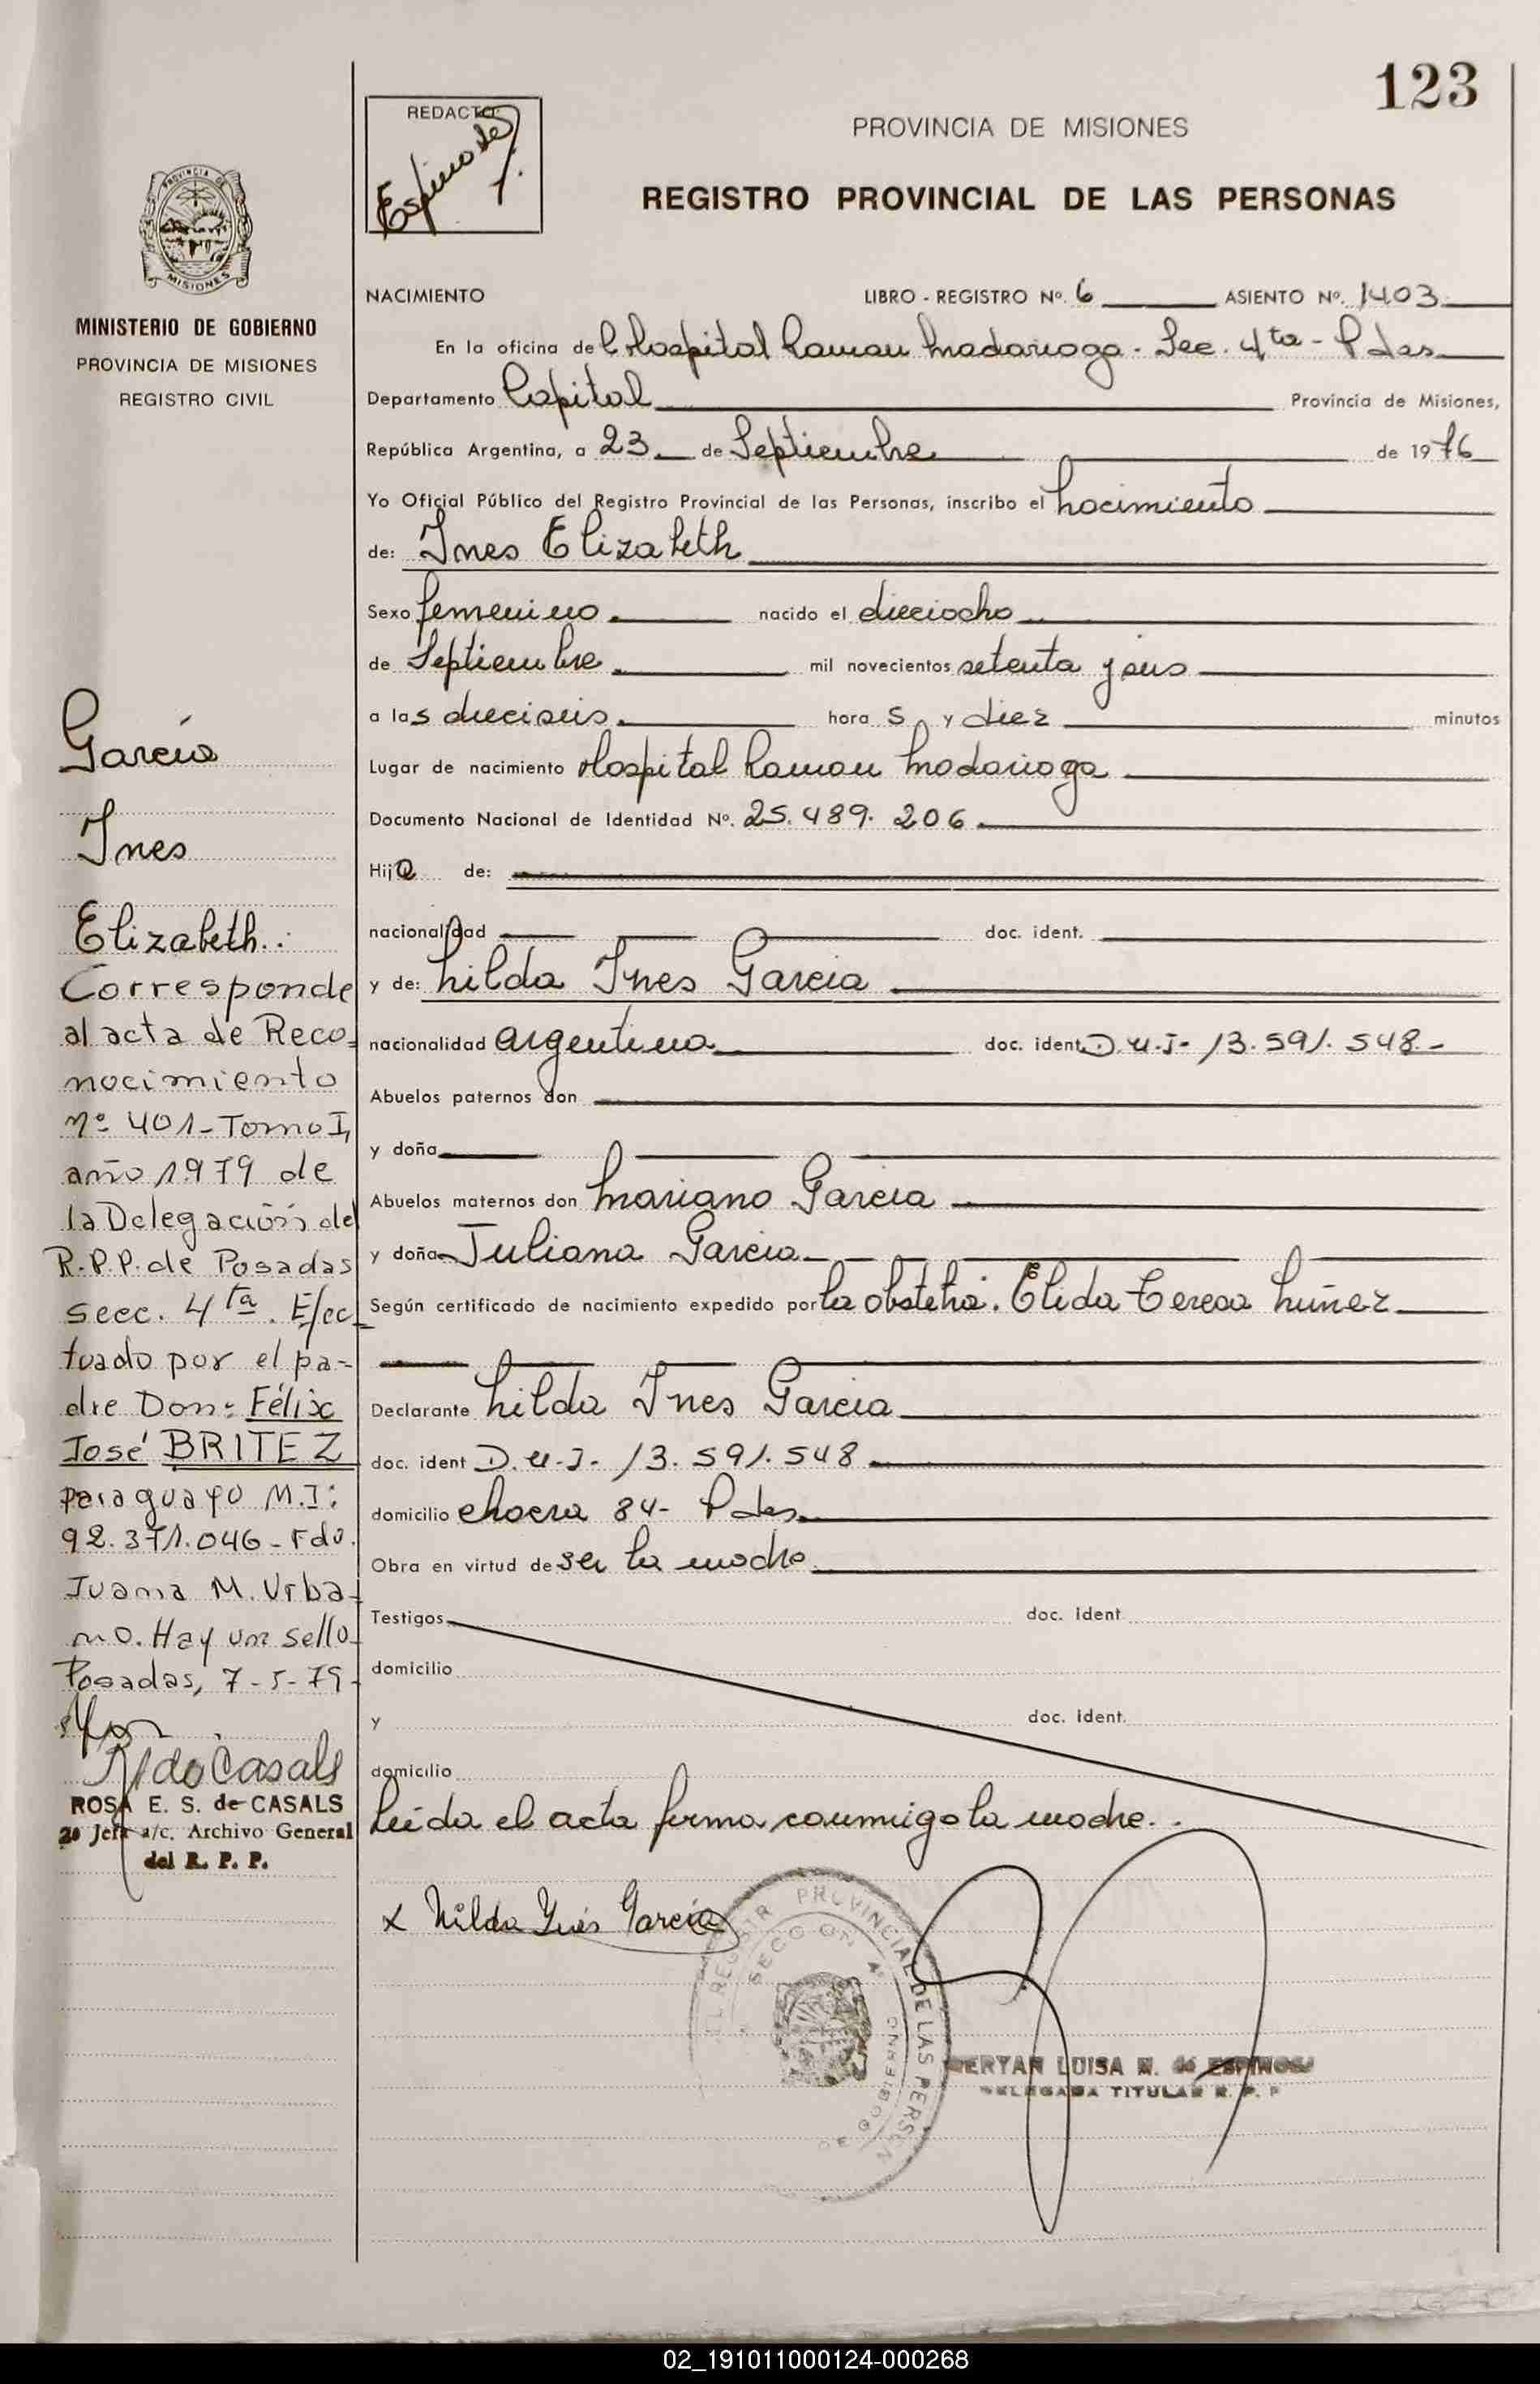 123
REDACTO
Espinosa
PROVINCIA DE MISIONES
REGISTRO PROVINCIAL DE LAS PERSONAS
PROVINCIA DE
MISIONES
MINISTERIO DE GOBIERNO
PROVINCIA DE MISIONES
REGISTRO CIVIL
NACIMIENTO LIBRO - REGISTRO Nº. 6 ASIENTO Nº. 1403
En la oficina de Hospital Ramon Madariaga - Sec. 4ta - Pdas
Departamento Capital Provincia de Misiones,
República Argentina, a 23 de Septiembre de 1976
Yo Oficial Público del Registro Provincial de las Personas, inscribo el Nacimiento
de: Ines Elizabeth
Sexo femenino. nacido el dieciocho
de Septiembre. mil novecientos setenta y seis
a las dieciseis. horas y diez minutos
Lugar de nacimiento Hospital Ramon Madariaga
Documento Nacional de Identidad Nº. 25.489.206
Hija de:
nacionalidad doc. ident.
y de: Nilda Ines Garcia
nacionalidad argentina doc. ident. D.U.I- 13.591.548-
Abuelos paternos don
y doña
Abuelos maternos don Mariano Garcia
y doña Juliana Garcia
Según certificado de nacimiento expedido por la obstetra. Elida Teresa Nuñez
Declarante Nilda Ines Garcia
doc. ident D.U.I- 13.591.548
domicilio chacra 84- Pdas
Obra en virtud de ser la madre
Testigos doc. ident
domicilio
y doc. ident.
domicilio
Leida el acta firma conmigo la madre.
x Nilda Inés Garcia
REGISTR PROVINCIAL DE LAS PERSON
SECCION 4ª
DE GOBIERNO
MERYAN LUISA N. de ESPINOSA
DELEGADA TITULAR R. P. P
Garcia
Ines
Elizabeth.:
Corresponde
al acta de Reco-
nocimiento
Nº 401-Tomo I,
año 1979 de
la Delegación del
R.P.P. de Posadas
secc. 4ta. Efec-
tuado por el pa-
dre Don: Félix
José BRITEZ
paraguayo M.I:
92.371.046-Fdo.
Juana M. Urba-
no. Hay un sello-
Posadas, 7-5-79-
ROSA E. S. de CASALS
2º Jefa a/c. Archivo General
del R. P. P.
02_191011000124-000268